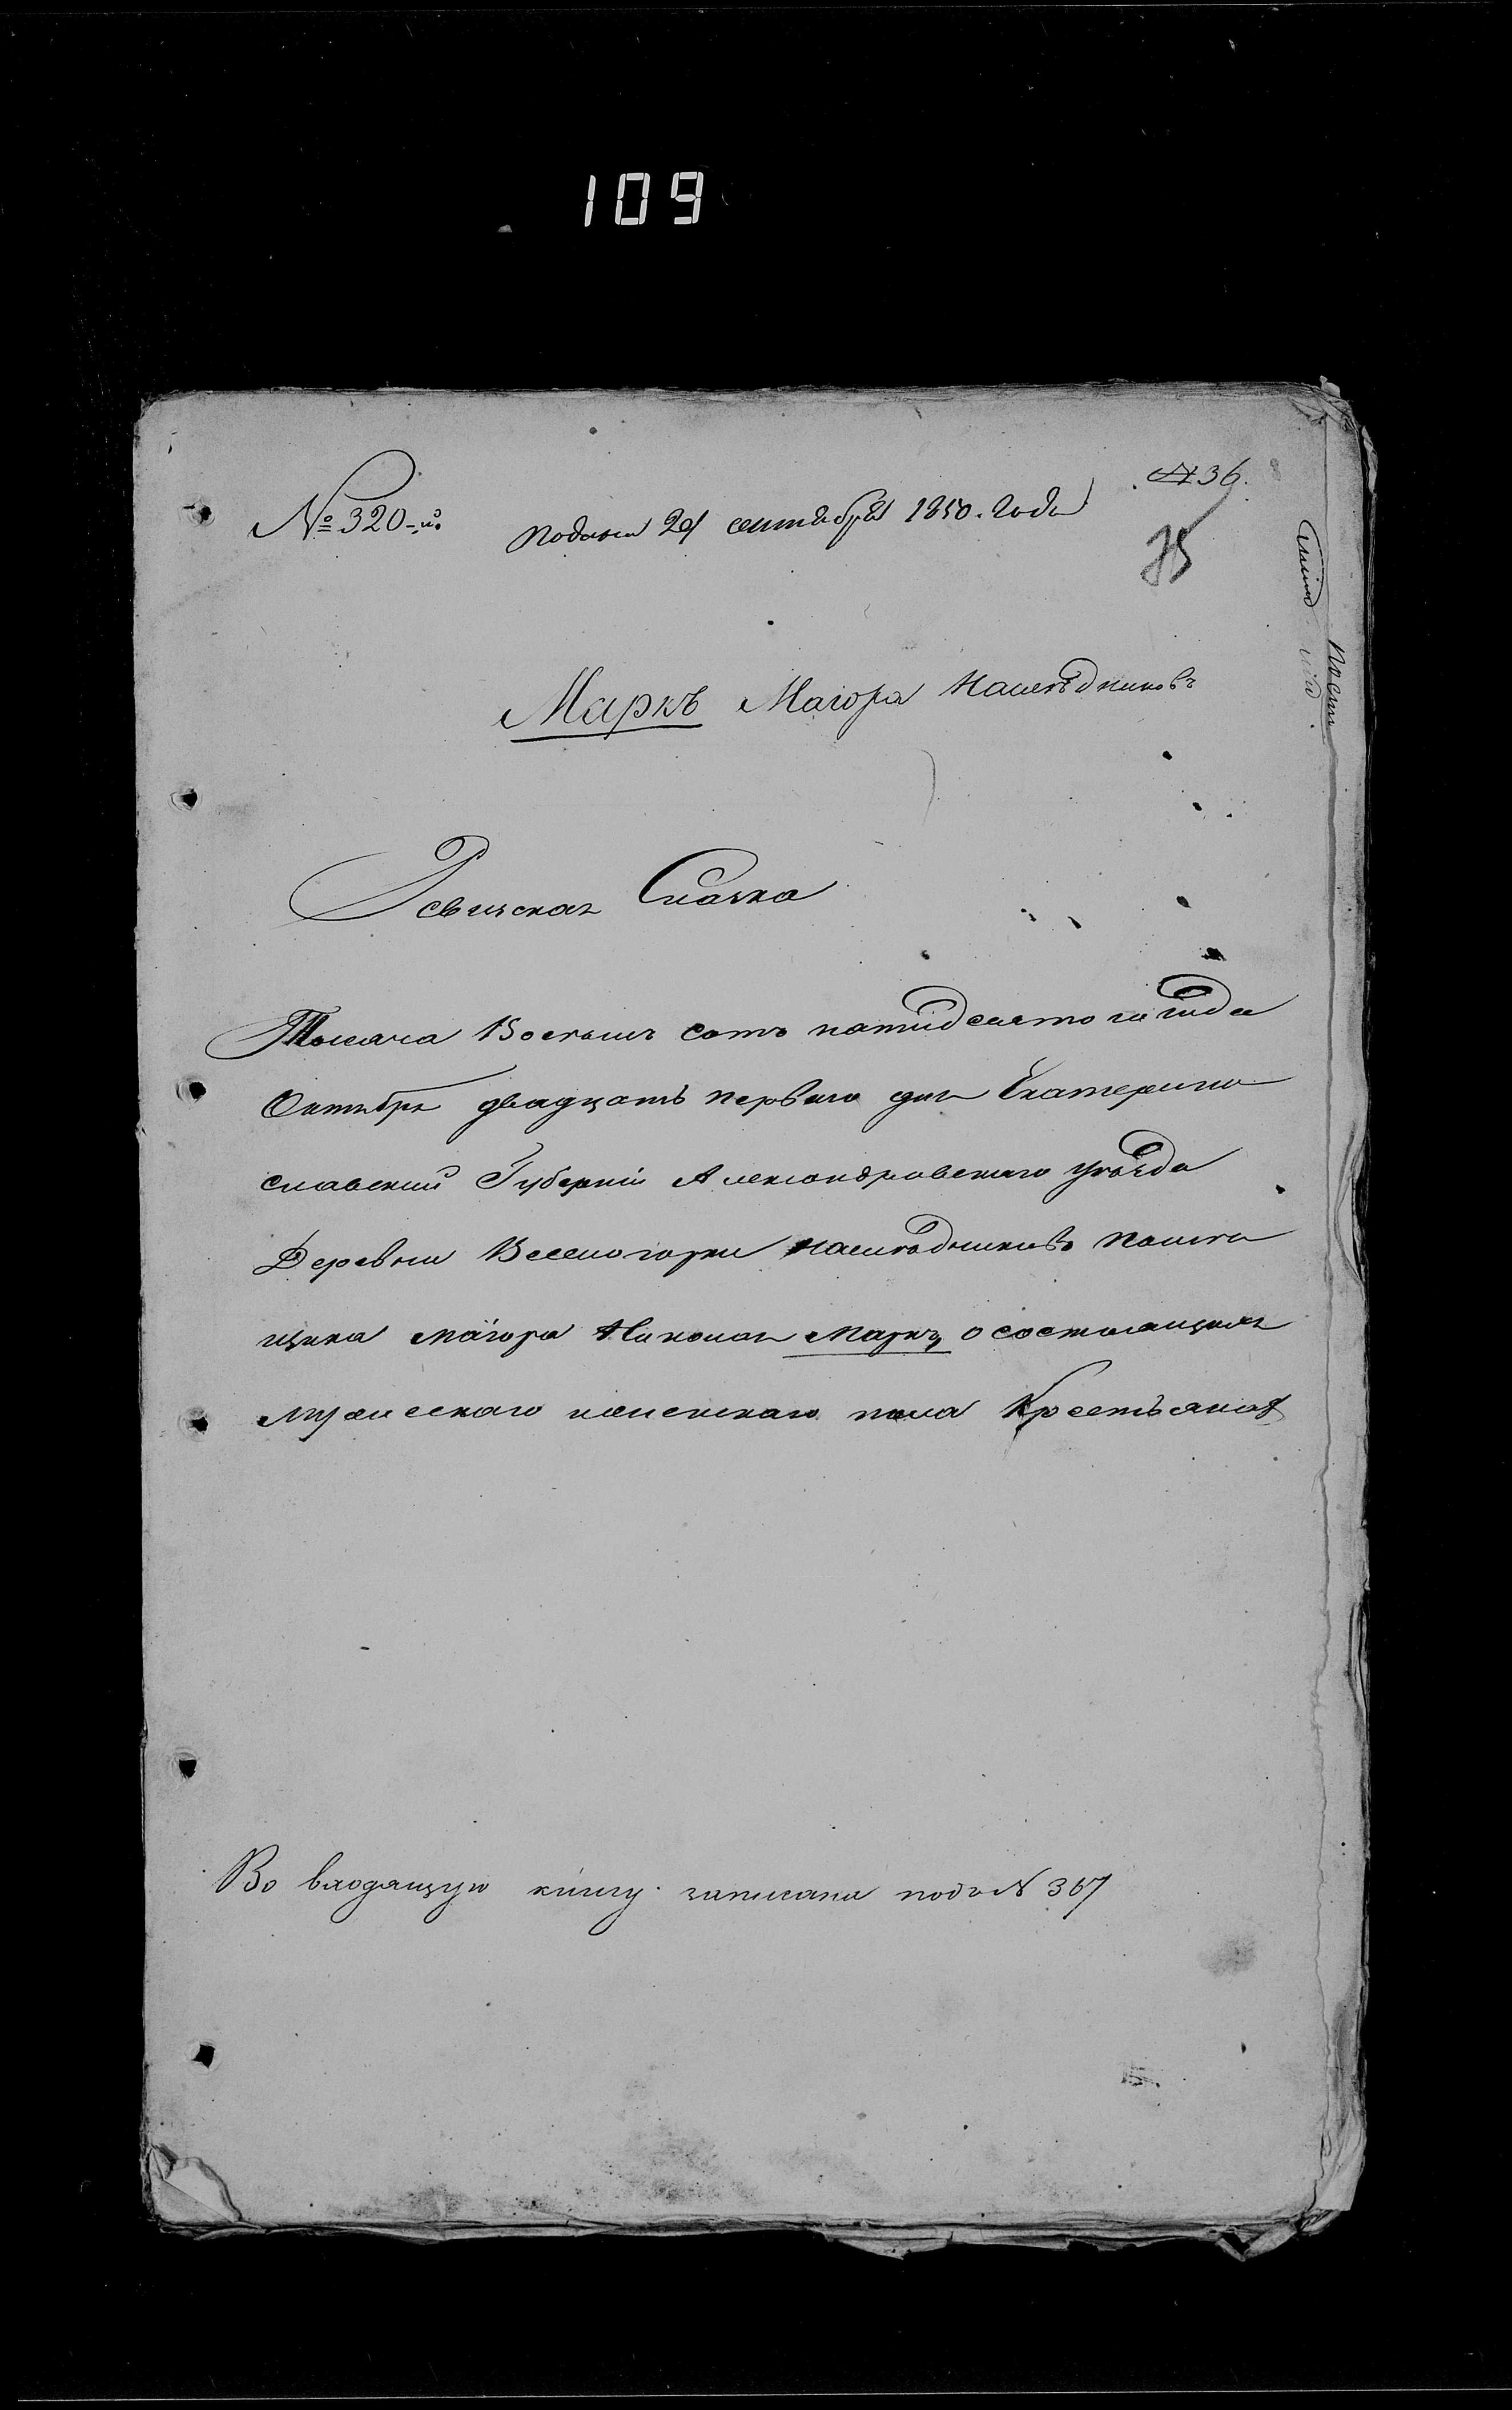 109
№ 36.
№ 320-й. подана 21 сентября 1850. Года
35
Маркъ Маіора Наслѣдниковъ
Ревизская Сказка
Тысяча Восемь сотъ пятидесятого года
Октября двадцать перваго дня Екатерино
славской Губерніи Александровскаго уѣзда
Деревни Веселогорки наслѣдниковъ помѣ
щика маіора Николая Маркъ, о состоящихъ
мужескаго и женскаго пола Крестьянах
Во входящую книгу записана подъ № 367